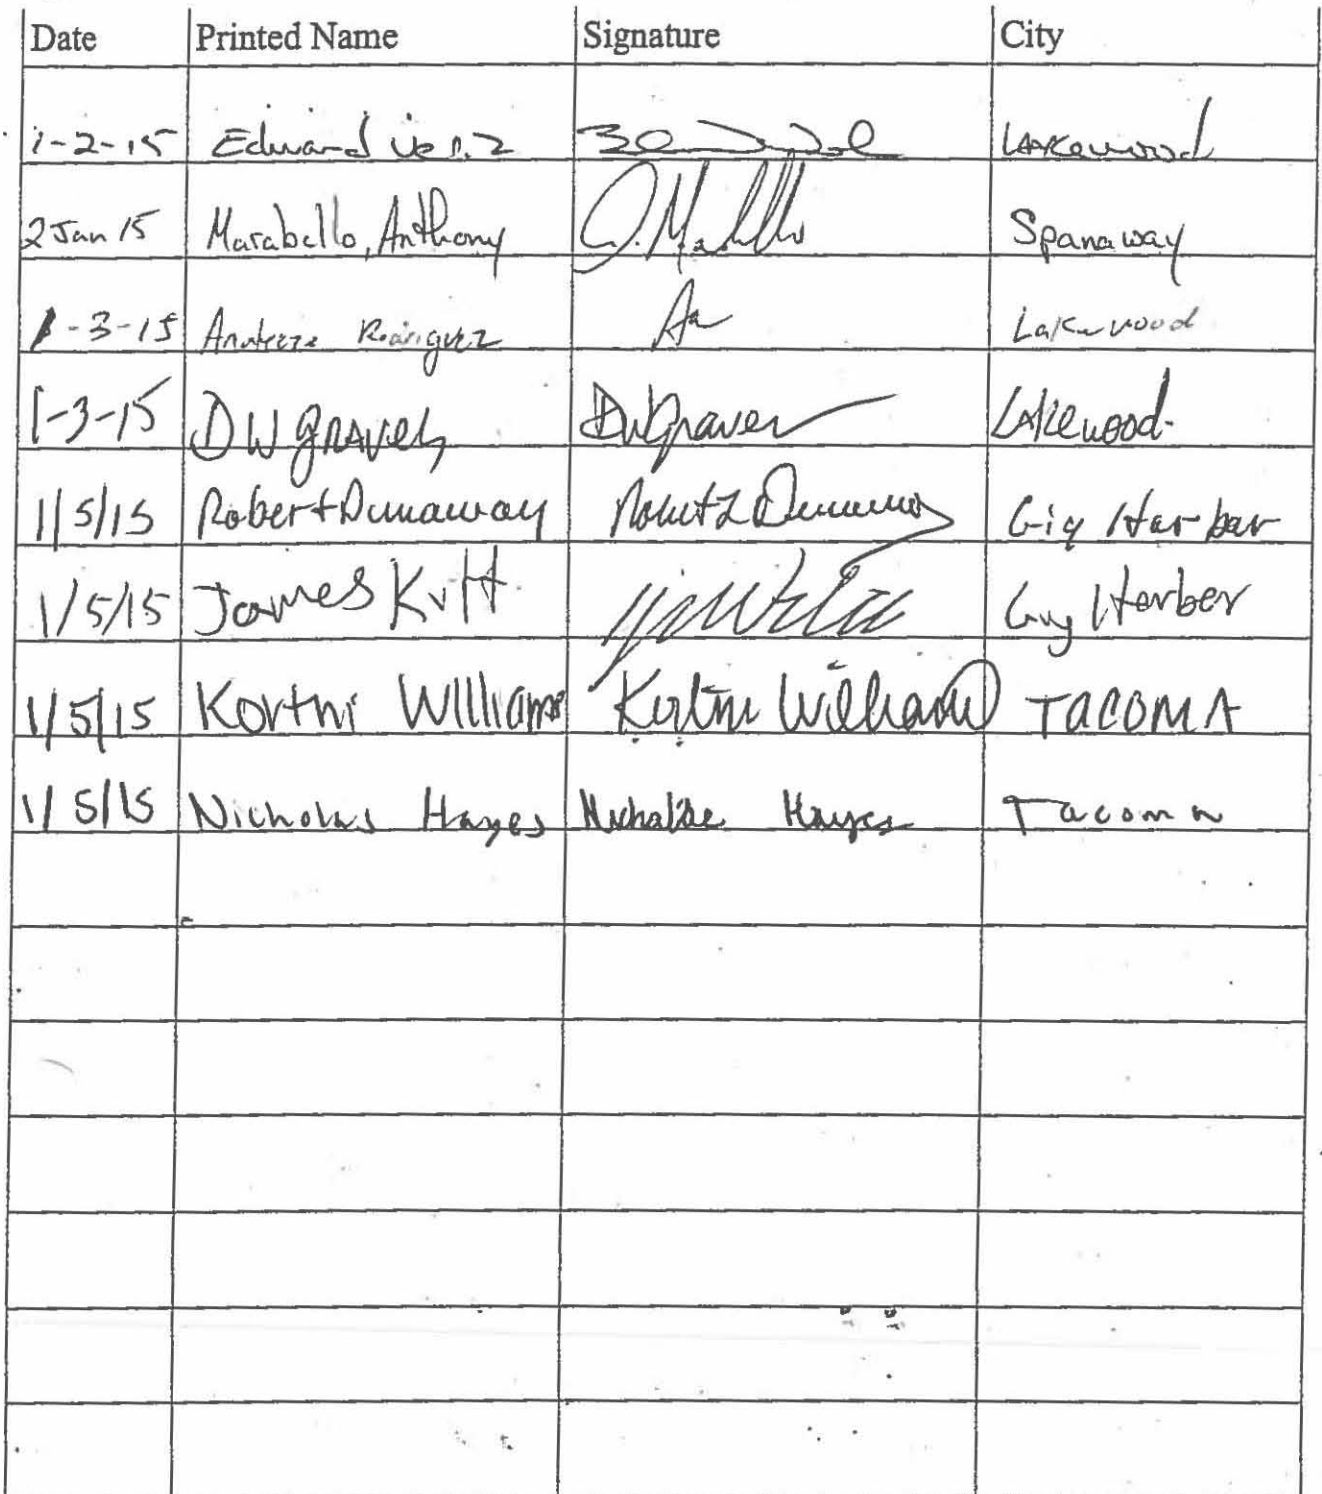 Date Printed Name Signature City
1-2-15 Edward Lakewood
2 Jan 15 Marabello, Anthony Spanaway
1-3-15 Lakewood
1-3-15 DW graves DW Graves Lakewood
1/5/15 Robert Dunaway Robert L Dunaway Gig Harbor
1/5/15 James Gig Harber
1/5/15 Kortni Williams Kortni Williams TACOMA
1/5/15 Nicholas Hayes Nicholas Hayes Tacoma